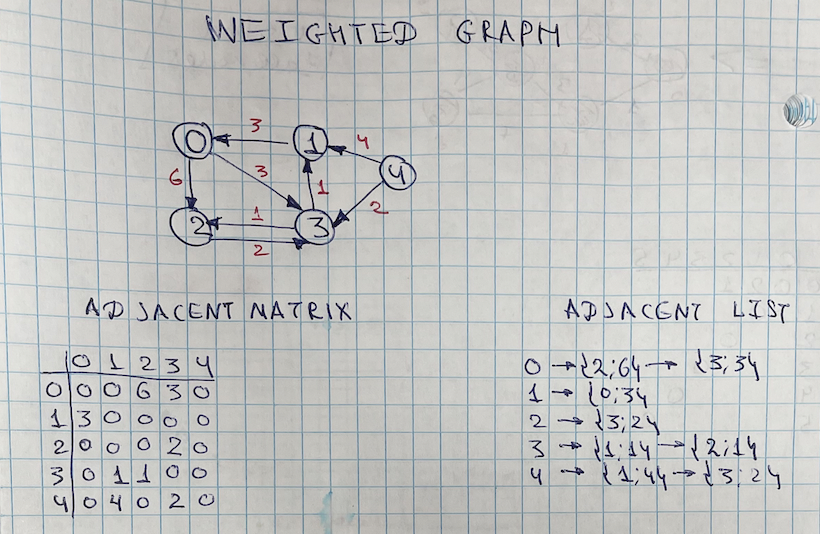 WEIGHTED GRAPH
3
0 1 4
4
6 3 1 2
1
2 3
2
ADJACENT MATRIX
0 1 2 3 4
0 0 0 6 3 0
1 3 0 0 0 0
2 0 0 0 2 0
3 0 1 1 0 0
4 0 4 0 2 0
ADJACENT LIST
0 → {2;6} → {3;3}
1 → {0;3}
2 → {3;2}
3 → {1;1} → {2;1}
4 → {1;4} → {3;2}